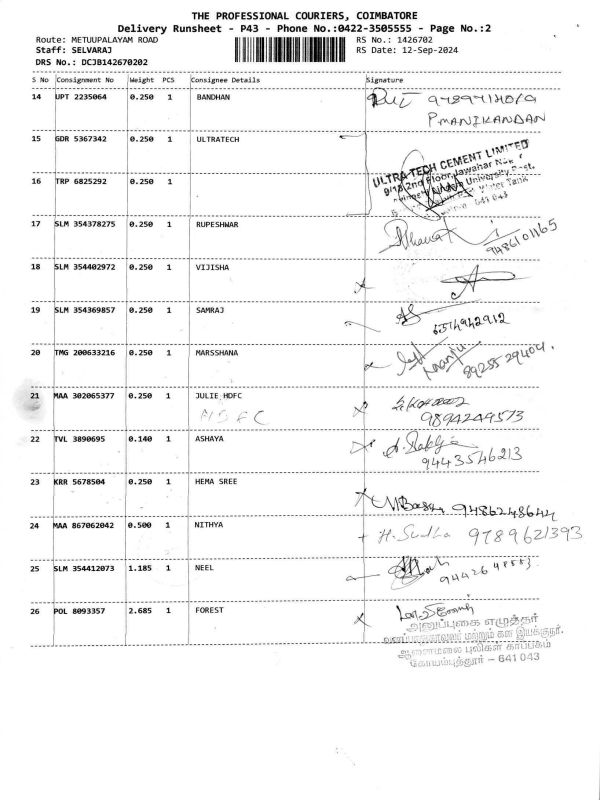 THE PROFESSIONAL COURIERS, COIMBATORE
Delivery Runsheet - P43 - Phone No.:0422-3505555 - Page No.:2
Route: METUUPALAYAM ROAD RS No.: 1426702
Staff: SELVARAJ RS Date: 12-Sep-2024
DRS No.: DCJB142670202
S No Consignment No Weight PCS Consignee Details Signature
14 UPT 2235064 0.250 1 BANDHAN
P.MANIKANDAN
15 GDR 5367342 0.250 1 ULTRATECH
ULTRA TECH CEMENT LIMITED
16 TRP 6825292 0.250 1
9/13 2nd Floor, Jawahar
University
Water Tank
641 043
17 SLM 354378275 0.250 1 RUPESHWAR
9486101165
18 SLM 354402972 0.250 1 VIJISHA
19 SLM 354369857 0.250 1 SAMRAJ
6374942912
20 TMG 200633216 0.250 1 MARSSHANA
8925529404.
21 MAA 302065377 0.250 1 JULIE HDFC
HDFC 9894249573
22 TVL 3890695 0.140 1 ASHAYA
9443546213
23 KRR 5678504 0.250 1 HEMA SREE
9486248644
24 MAA 867062042 0.500 1 NITHYA
H. Sudha 9789621393
25 SLM 354412073 1.185 1 NEEL
26 POL 8093357 2.685 1 FOREST
அனுப்புகை எழுத்தர்
வனப்பாதுகாவலர் மற்றும் கள இயக்குநர்.
ஆனைமலை புலிகள் காப்பகம்
கோயம்புத்தூர் – 641 043